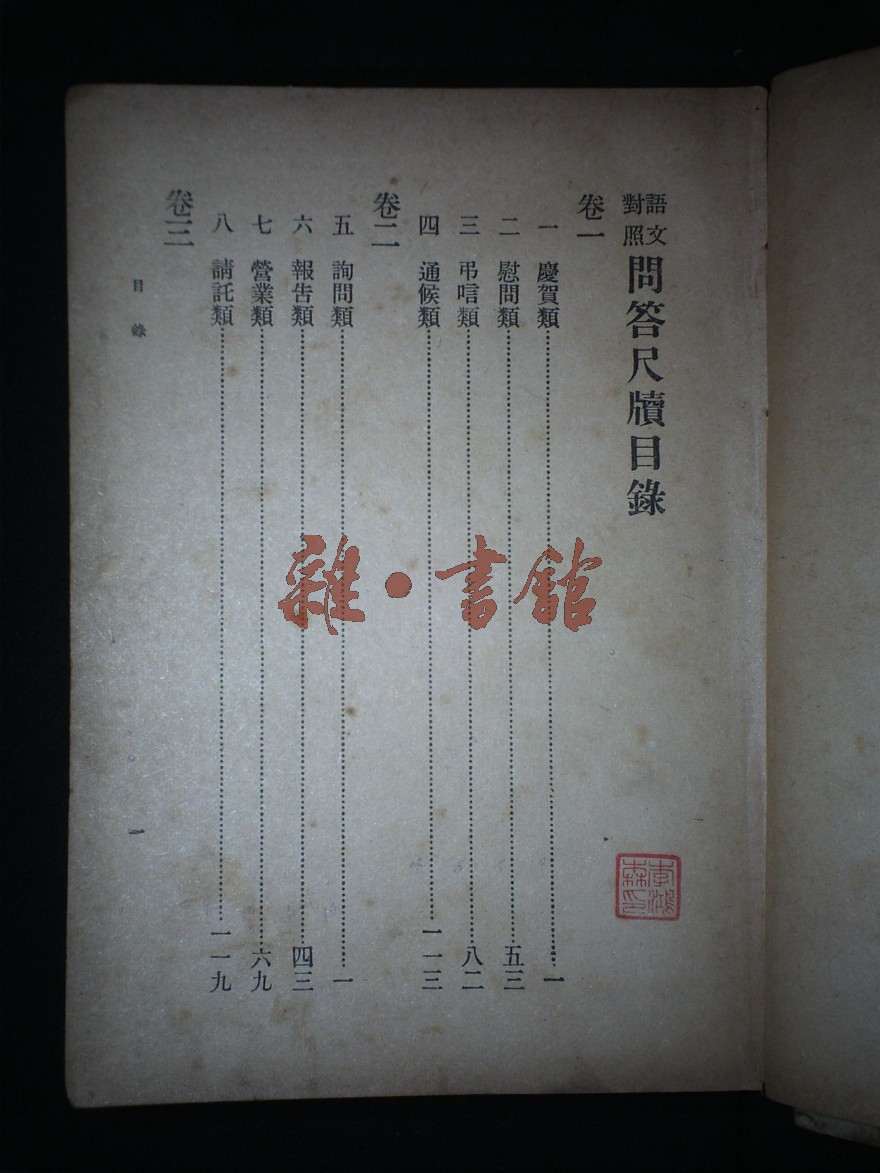 語文對照問答尺牘目錄
卷一
一 慶賀類 一
二 慰問類 五三
三 弔唁類 八二
四 通候類 一一三
卷二
五 詢問類 一
六 報告類 四三
七 營業類 六九
八 請託類 一一九
卷三
目錄
一
雜·書館
李鴻森印